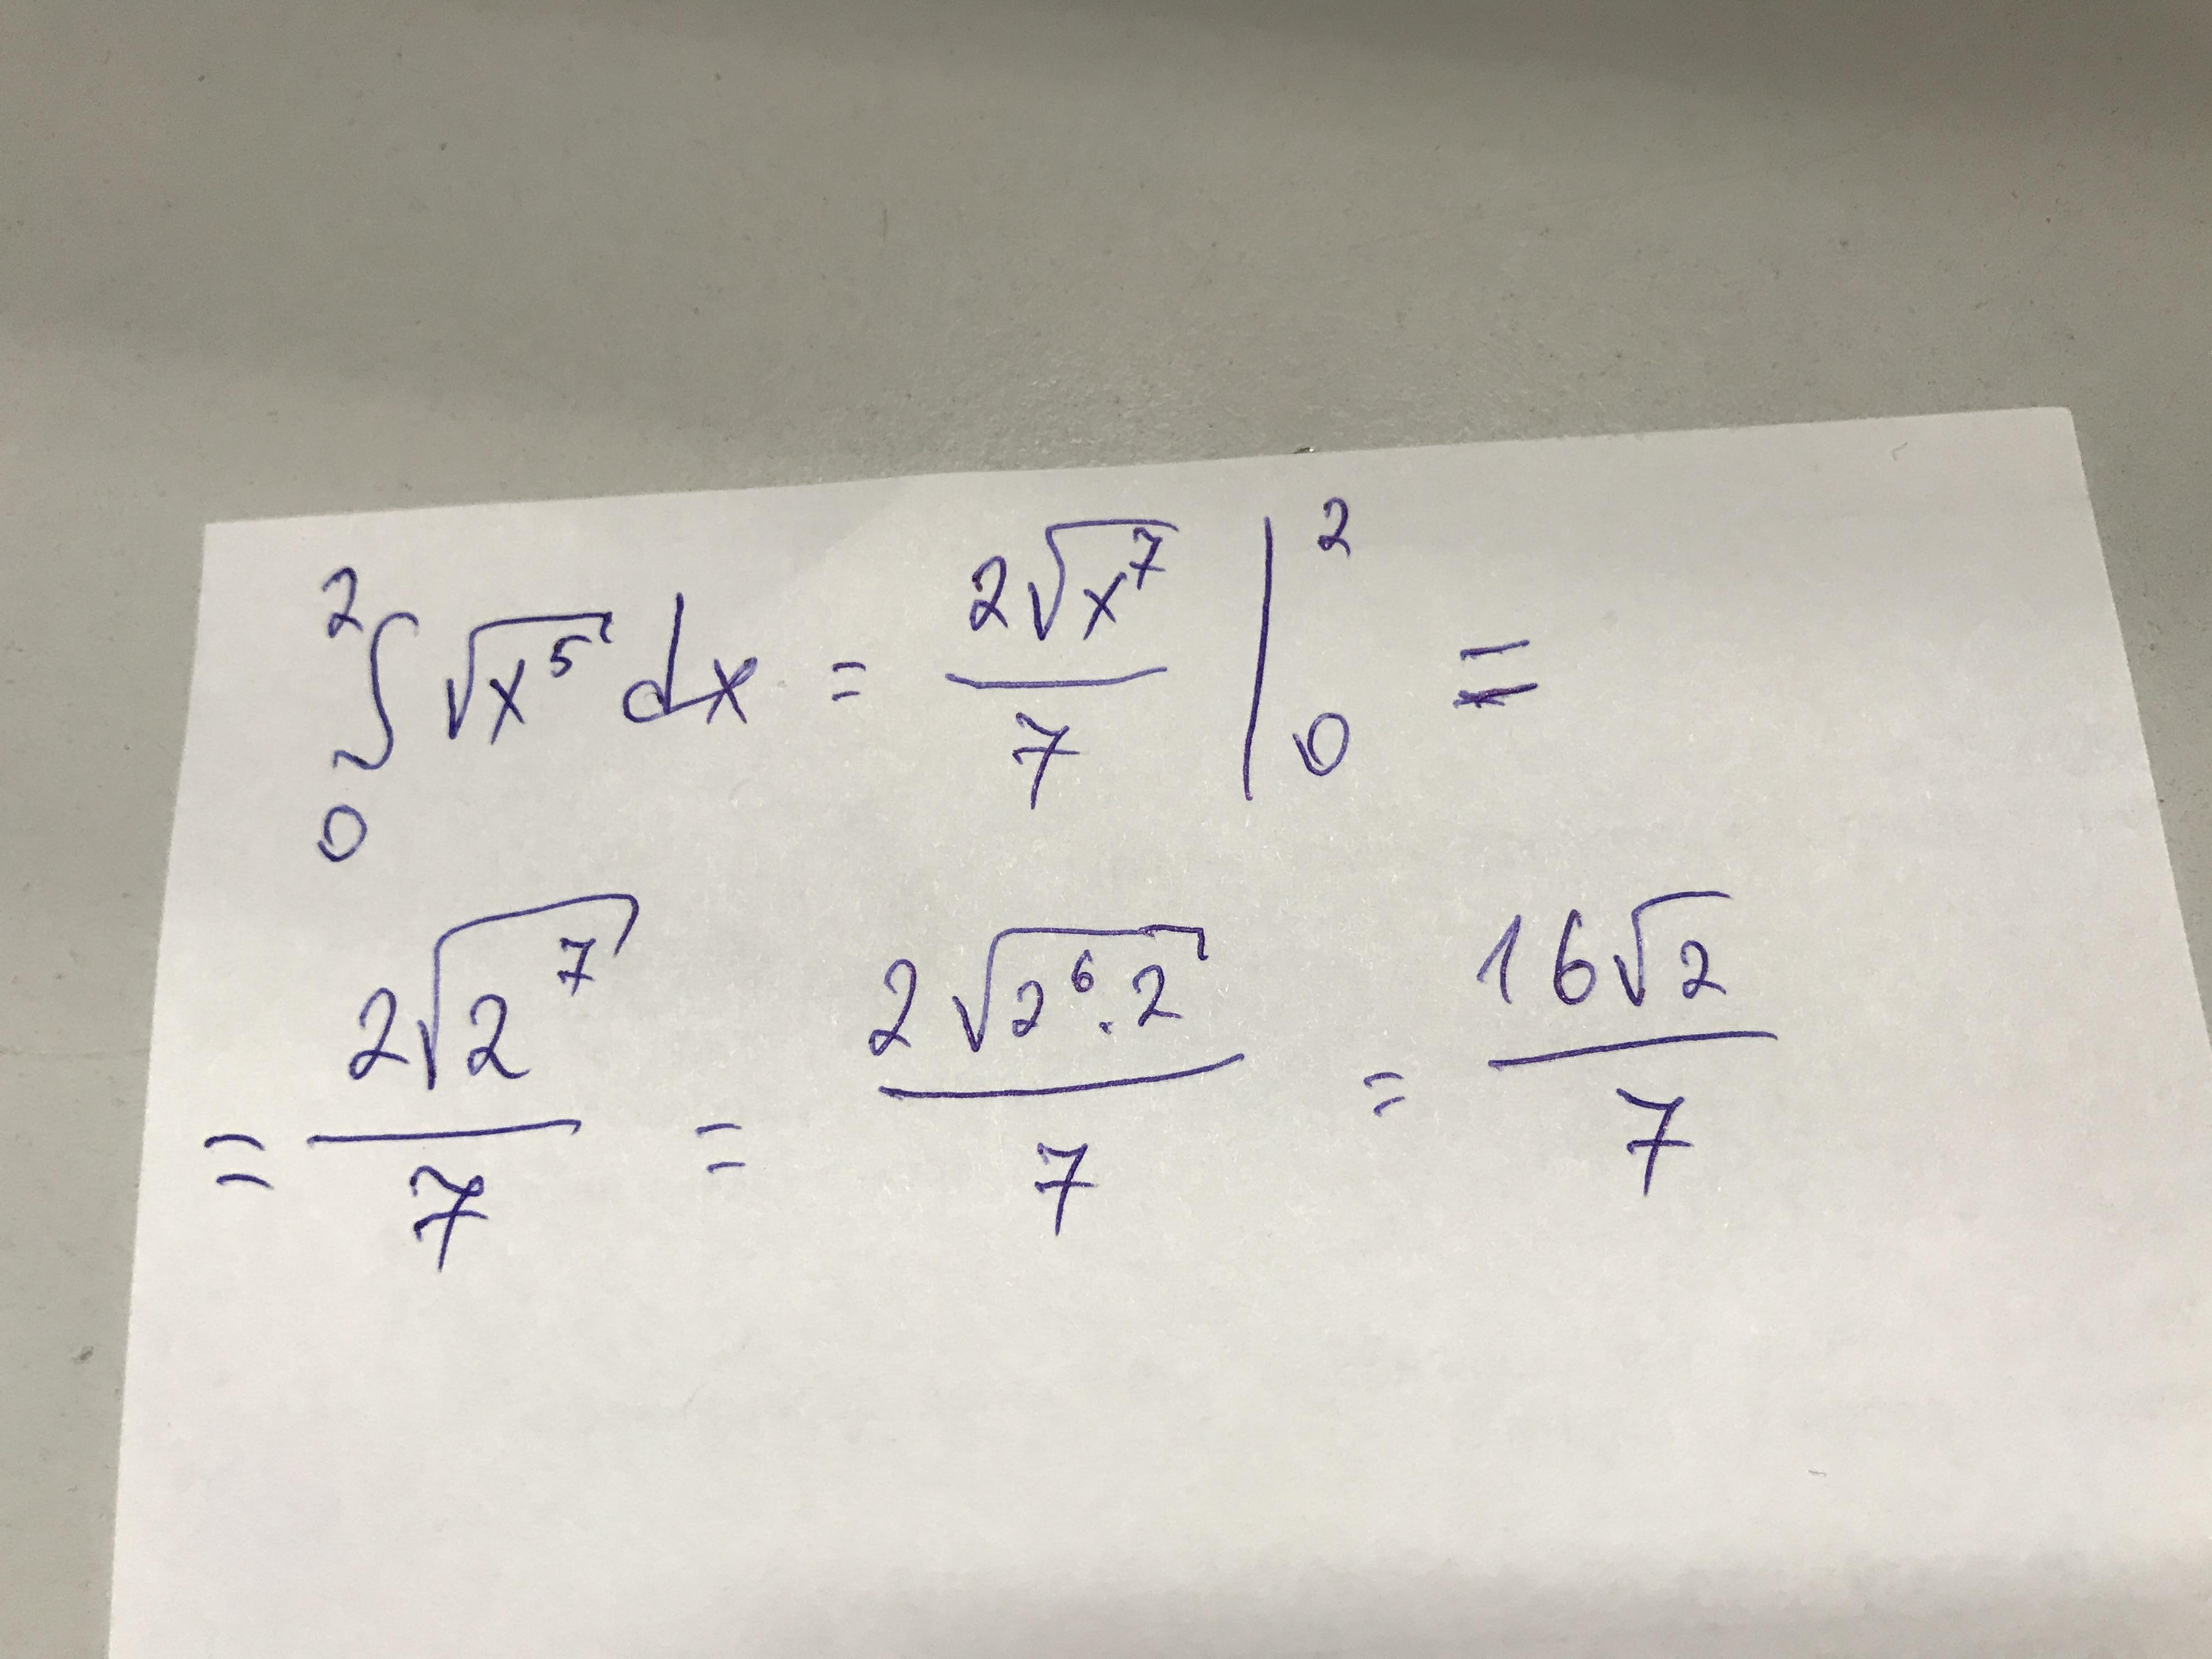 ∫₀² √x⁵ dx = 2√x⁷/7 |₀² =
= 2√2⁷/7 = 2√2⁶·2/7 = 16√2/7